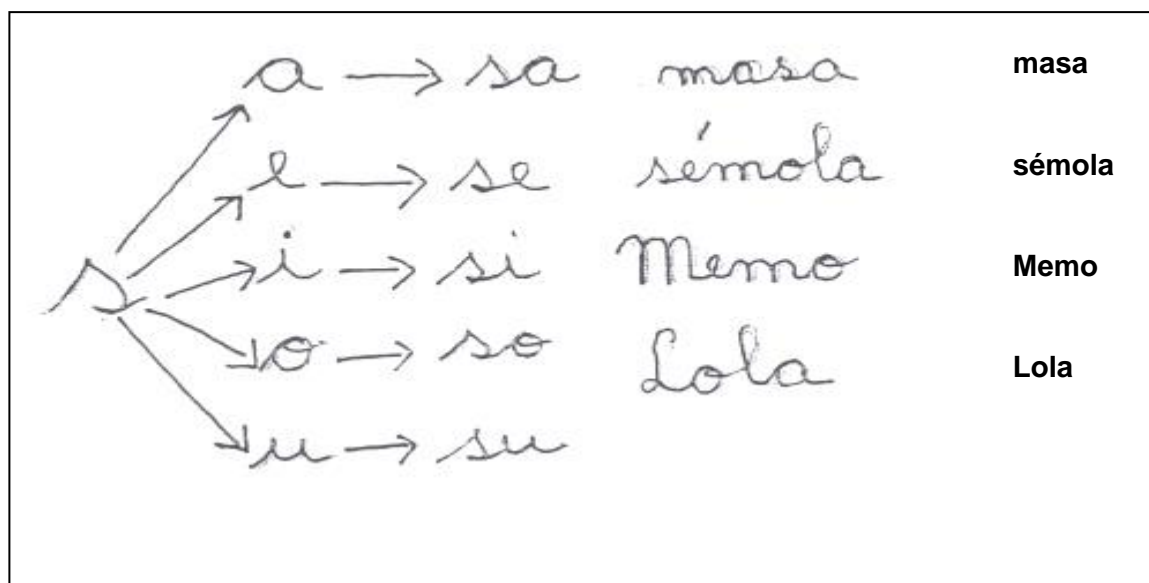 a → sa masa masa
e → se sémola sémola
s i → si Memo Memo
o → so Lola Lola
u → su